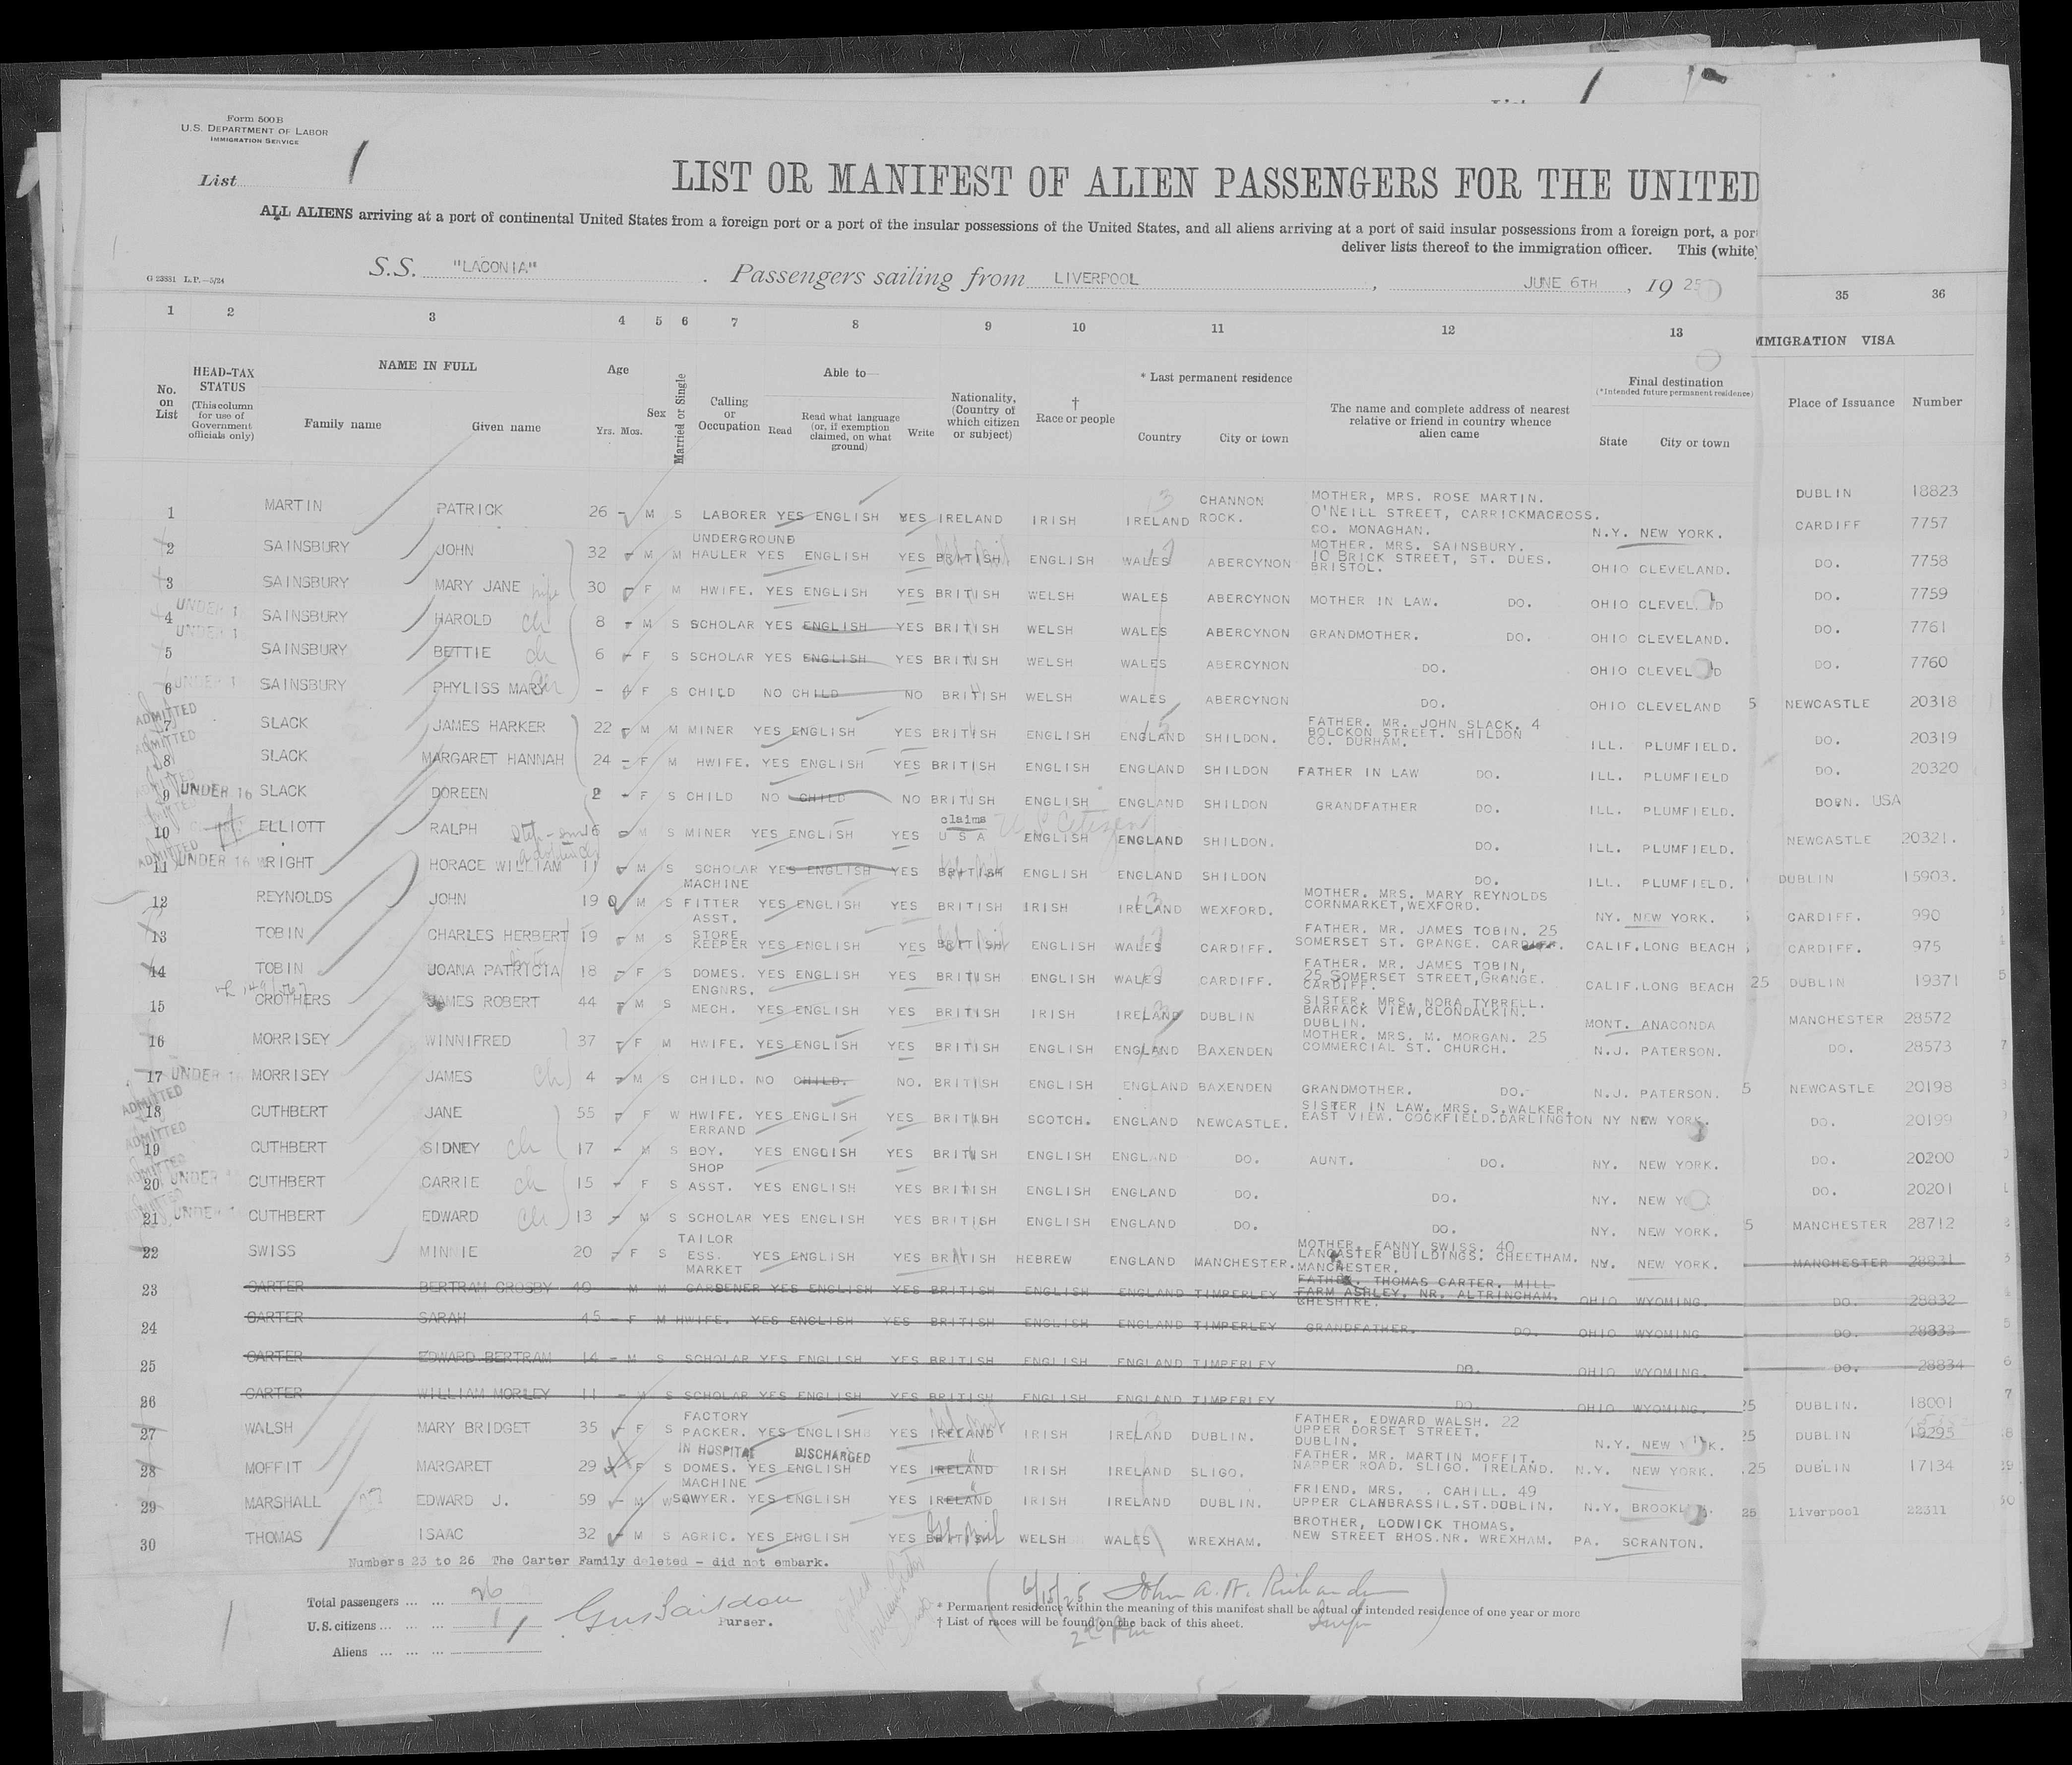 Form 500B
U.S. DEPARTMENT OF LABOR
IMMIGRATION SERVICE
List 1
LIST OR MANIFEST OF ALIEN PASSENGERS FOR THE UNITED
ALL ALIENS arriving at a port of continental United States from a foreign port or a port of the insular possessions of the United States, and all aliens arriving at a port of said insular possessions from a foreign port, a por
deliver lists thereof to the immigration officer. This (white)
G 23881 L.P.—5/24
S.S. "LACONIA" . Passengers sailing from LIVERPOOL , JUNE 6TH , 19 25
1 2 3 4 5 6 7 8 9 10 11 12 13 35 36
No. on List
HEAD-TAX STATUS (This column for use of Government officials only)
NAME IN FULL
Family name Given name
Age
Yrs. Mos.
Sex
Married or Single
Calling or Occupation
Able to—
Read Read what language (or, if exemption claimed, on what ground) Write
Nationality. (Country of which citizen or subject)
† Race or people
* Last permanent residence
Country City or town
The name and complete address of nearest relative or friend in country whence alien came
Final destination
(*Intended future permanent residence)
State City or town
IMMIGRATION VISA
Place of Issuance Number
1 MARTIN PATRICK 26 - M S LABORER YES ENGLISH YES IRELAND IRISH IRELAND CHANNON ROCK. MOTHER, MRS. ROSE MARTIN. O'NEILL STREET, CARRICKMACROSS. CO. MONAGHAN. N.Y. NEW YORK. DUBLIN 18823
2 SAINSBURY JOHN 32 - M M UNDERGROUND HAULER YES ENGLISH YES BRITISH ENGLISH WALES ABERCYNON MOTHER. MRS. SAINSBURY. 10 BRICK STREET, ST. DUES. BRISTOL. OHIO CLEVELAND. CARDIFF 7757
3 SAINSBURY MARY JANE wife 30 - F M HWIFE. YES ENGLISH YES BRITISH WELSH WALES ABERCYNON MOTHER IN LAW. DO. OHIO CLEVEL D DO. 7758
4 UNDER 1 SAINSBURY HAROLD ch 8 - M S SCHOLAR YES ENGLISH YES BRITISH WELSH WALES ABERCYNON GRANDMOTHER. DO. OHIO CLEVELAND. DO. 7759
5 UNDER 1 SAINSBURY BETTIE ch 6 - F S SCHOLAR YES ENGLISH YES BRITISH WELSH WALES ABERCYNON DO. OHIO CLEVEL D DO. 7761
6 UNDER 1 SAINSBURY PHYLISS MARY ch - 4 F S CHILD NO CHILD NO BRITISH WELSH WALES ABERCYNON DO. OHIO CLEVELAND DO. 7760
7 ADMITTED SLACK JAMES HARKER 22 - M M MINER YES ENGLISH YES BRITISH ENGLISH ENGLAND SHILDON. FATHER. MR. JOHN SLACK. 4 BOLCKON STREET. SHILDON CO. DURHAM. ILL. PLUMFIELD. 5 NEWCASTLE 20318
8 ADMITTED SLACK MARGARET HANNAH 24 - F M HWIFE. YES ENGLISH YES BRITISH ENGLISH ENGLAND SHILDON FATHER IN LAW DO. ILL. PLUMFIELD DO. 20319
9 ADMITTED UNDER 16 SLACK DOREEN 2 - F S CHILD NO CHILD NO BRITISH ENGLISH ENGLAND SHILDON GRANDFATHER DO. ILL. PLUMFIELD. DO. 20320
10 ELLIOTT RALPH Step-son 16 M S MINER YES ENGLISH YES claims U S A U S Citizen ENGLISH ENGLAND SHILDON. DO. ILL. PLUMFIELD. BORN. USA
11 ADMITTED UNDER 16 WRIGHT HORACE WILLIAM 11 - M S SCHOLAR YES ENGLISH YES BRITISH ENGLISH ENGLAND SHILDON DO. ILL. PLUMFIELD. NEWCASTLE 20321.
12 REYNOLDS JOHN 19 0 M S MACHINE FITTER YES ENGLISH YES BRITISH IRISH IRELAND WEXFORD. MOTHER. MRS. MARY REYNOLDS CORNMARKET, WEXFORD. NY. NEW YORK. DUBLIN 15903.
13 TOBIN CHARLES HERBERT 19 - M S ASST. STORE KEEPER YES ENGLISH YES BRITISH ENGLISH WALES CARDIFF. FATHER. MR. JAMES TOBIN. 25 SOMERSET ST. GRANGE. CARDIFF. CALIF. LONG BEACH CARDIFF. 990
14 TOBIN JOANA PATRICIA 18 - F S DOMES. YES ENGLISH YES BRITISH ENGLISH WALES CARDIFF. FATHER. MR. JAMES TOBIN, 25 SOMERSET STREET, GRANGE. CARDIFF. CALIF. LONG BEACH CARDIFF. 975
15 CROTHERS JAMES ROBERT 44 - M S ENGNRS. MECH. YES ENGLISH YES BRITISH IRISH IRELAND DUBLIN SISTER. MRS. NORA TYRRELL. BARRACK VIEW, CLONDALKIN. DUBLIN. MONT. ANACONDA 25 DUBLIN 19371
16 MORRISEY WINNIFRED 37 - F M HWIFE. YES ENGLISH YES BRITISH ENGLISH ENGLAND BAXENDEN MOTHER. MRS. M. MORGAN. 25 COMMERCIAL ST. CHURCH. N.J. PATERSON. MANCHESTER 28572
17 UNDER 16 MORRISEY JAMES ch 4 - M S CHILD. NO CHILD. NO. BRITISH ENGLISH ENGLAND BAXENDEN GRANDMOTHER. DO.- N.J. PATERSON. DO. 28573
18 ADMITTED CUTHBERT JANE 55 - F W HWIFE. YES ENGLISH YES BRITISH SCOTCH. ENGLAND NEWCASTLE. SISTER IN LAW. MRS. S. WALKER. EAST VIEW. COCKFIELD. DARLINGTON NY NEW YORK. 5 NEWCASTLE 20198
19 ADMITTED CUTHBERT SIDNEY ch 17 - M S ERRAND BOY. YES ENGLISH YES BRITISH ENGLISH ENGLAND DO. AUNT. DO. NY. NEW YORK. DO. 20199
20 ADMITTED UNDER 1 CUTHBERT CARRIE ch 15 - F S SHOP ASST. YES ENGLISH YES BRITISH ENGLISH ENGLAND DO. DO. NY. NEW YO DO. 20200
21 UNDER 1 CUTHBERT EDWARD ch 13 - M S SCHOLAR YES ENGLISH YES BRITISH ENGLISH ENGLAND DO. DO. NY. NEW YORK. DO. 20201
22 SWISS MINNIE 20 - F S TAILOR ESS. YES ENGLISH YES BRITISH HEBREW ENGLAND MANCHESTER. MOTHER. FANNY SWISS. 40 LANCASTER BUILDINGS. CHEETHAM. MANCHESTER. NY. NEW YORK. 5 MANCHESTER 28712
23 CARTER BERTRAM CROSBY 40 - M M MARKET GARDENER YES ENGLISH YES BRITISH ENGLISH ENGLAND TIMPERLEY FATHER. THOMAS CARTER. MILL FARM ASHLEY. NR. ALTRINCHAM. CHESHIRE. OHIO WYOMING. MANCHESTER 28831
24 CARTER SARAH 45 - F M HWIFE. YES ENGLISH YES BRITISH ENGLISH ENGLAND TIMPERLEY GRANDFATHER. DO. OHIO WYOMING DO. 28832
25 CARTER EDWARD BERTRAM 14 - M S SCHOLAR YES ENGLISH YES BRITISH ENGLISH ENGLAND TIMPERLEY DO. OHIO WYOMING. DO. 28833
26 CARTER WILLIAM MORLEY 11 - M S SCHOLAR YES ENGLISH YES BRITISH ENGLISH ENGLAND TIMPERLEY DO. OHIO WYOMING. DO. 28834
27 WALSH MARY BRIDGET 35 - F S FACTORY PACKER. YES ENGLISH YES IRELAND IRISH IRELAND DUBLIN. FATHER. EDWARD WALSH. 22 UPPER DORSET STREET. DUBLIN. N.Y. NEW Y K. 25 DUBLIN. 18001
28 MOFFIT MARGARET 29 F S IN HOSPITAL DISCHARGED DOMES. YES ENGLISH YES IRELAND IRISH IRELAND SLIGO. FATHER. MR. MARTIN MOFFIT. NAPPER ROAD. SLIGO. IRELAND. N.Y. NEW YORK. 25 DUBLIN 19295
29 MARSHALL EDWARD J. 59 - M W MACHINE SAWYER. YES ENGLISH YES IRELAND IRISH IRELAND DUBLIN. FRIEND. MRS. . CAHILL. 49 UPPER CLANBRASSIL. ST. DUBLIN. N.Y. BROOKL . .25 DUBLIN 17134
30 THOMAS ISAAC 32 - M S AGRIC. YES ENGLISH YES BRITISH WELSH WALES WREXHAM. BROTHER, LODWICK THOMAS. NEW STREET RHOS. NR. WREXHAM. PA. SCRANTON. 25 Liverpool 22311
Numbers 23 to 26 The Carter Family deleted - did not embark.
Total passengers 26
U.S. citizens 1
Aliens
Purser.
6/15/25 John A. W. Richards
* Permanent residence within the meaning of this manifest shall be actual or intended residence of one year or more
† List of races will be found on the back of this sheet.